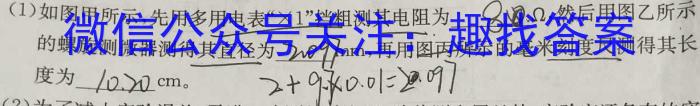 (1)如图甲所示,先用多用电表“×1”挡粗测其电阻为 Ω,然后用图乙所示
微信公众号关注:趣找答案
的螺旋测微器测得其直径为 mm,再用图丙所示的毫米刻度尺测得其长
度为 10.20 cm。 2+9.7×0.01=2.097